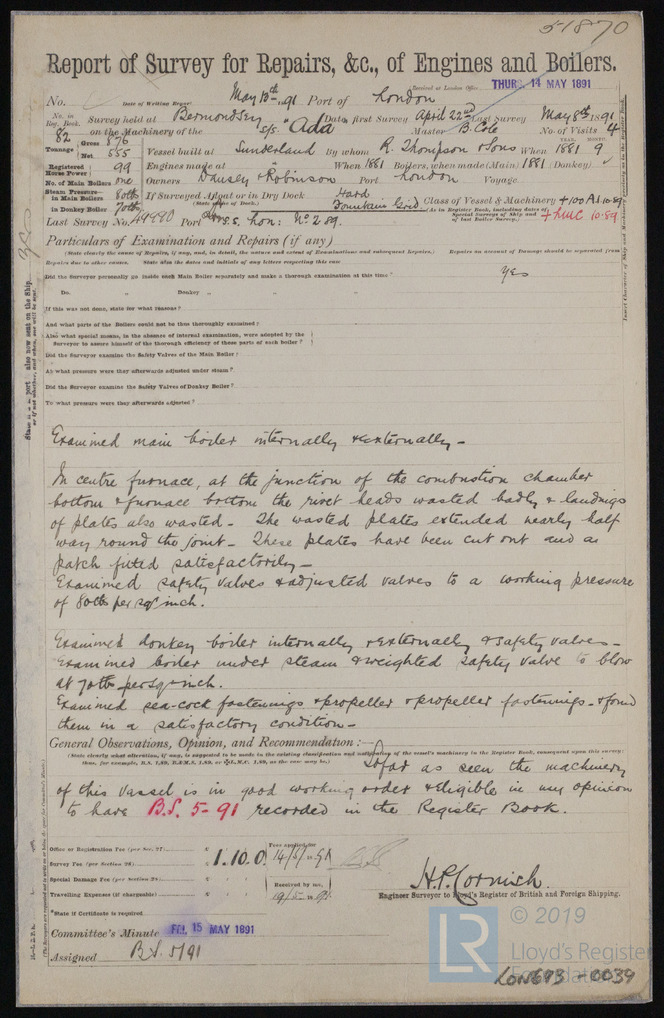 51870
Report of Survey for Repairs, &c., of Engines and Boilers.
Received at London Office THURS. 14 MAY 1891
No. Date of Writing Report May 13th 1891 Port of London
No. in Reg. Book. Survey held at Bermondsey Date, first Survey April 22nd Last Survey May 8th 1891
82 on the Machinery of the S/S. "Ada" Master B. Cole No. of Visits 4
Tonnage Gross 876 Net 555 Vessel built at Sunderland By whom R. Thompson & Sons When 1881 9
YEAR. MONTH.
Registered Horse Power 99 Engines made at When 1881 Boilers, when made (Main) 1881 (Donkey) ✓
No. of Main Boilers one Owners Dausey & Robinson Port London Voyage
Steam Pressure in Main Boilers 80lbs If Surveyed Afloat or in Dry Dock Hard
in Donkey Boiler 70lbs (State name of Dock.) Fountain Grid Class of Vessel & Machinery +100A1 10.89
(As in Register Book, including dates of Special Surveys of Ship and of last Boiler Survey.) + LMC 10.89
Last Survey No. 49990 Port S.S. Lon: No 2 89.
Particulars of Examination and Repairs (if any)
(State clearly the cause of Repairs, if any, and, in detail, the nature and extent of Examinations and subsequent Repairs.) Repairs on account of Damage should be separated from
Repairs due to other causes. State also the dates and initials of any letters respecting this case
Did the Surveyor personally go inside each Main Boiler separately and make a thorough examination at this time? Yes
Do. " Donkey " " "
If this was not done, state for what reasons?
And what parts of the Boilers could not be thus thoroughly examined?
Also what special means, in the absence of internal examination, were adopted by the
Surveyor to assure himself of the thorough efficiency of these parts of each boiler?
Did the Surveyor examine the Safety Valves of the Main Boiler?
At what pressure were they afterwards adjusted under steam?
Did the Surveyor examine the Safety Valves of Donkey Boiler?
To what pressure were they afterwards adjusted?
Examined main boiler internally & externally -
In centre furnace, at the junction of the combustion chamber
bottom & furnace bottom the rivet heads wasted badly & landings
of plates also wasted - The wasted plates extended nearly half
way round the joint - These plates have been cut out and a
patch fitted satisfactorily -
Examined safety valves & adjusted valves to a working pressure
of 80lbs per sq inch.
Examined donkey boiler internally & externally & safety valves -
Examined boiler under steam & weighted safety valve to blow
at 70lbs per sq inch.
Examined sea-cock fastenings & propeller & propeller fastenings - & found
them in a satisfactory condition -
General Observations, Opinion, and Recommendation :-
(State clearly what alteration, if any, is suggested to be made in the existing classification and notification of the vessel's machinery in the Register Book, consequent upon this survey:
So far as seen the machinery
of this vessel is in good working order & eligible in my opinion
to have B.S. 5-91 recorded in the Register Book.
Office or Registration Fee (per Sec. 27) Fees applied for
Survey Fee (per Section 28) £ 1.10.0 14/5/1891
Special Damage Fee (per Section 28) £ Received by me,
Travelling Expenses (if chargeable) £ 19/5/1891
H. P. Cornish.
Engineer Surveyor to Lloyd's Register of British and Foreign Shipping.
*State if Certificate is required
Committee's Minute FRI. 15 MAY 1891
Assigned B.S. 5/91
LR © 2019
Lloyd's Register
Foundation
LON693-0039